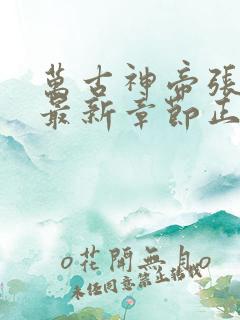 萬古神帝張
最新章節正
o花開無月o
未経同意禁止轉載